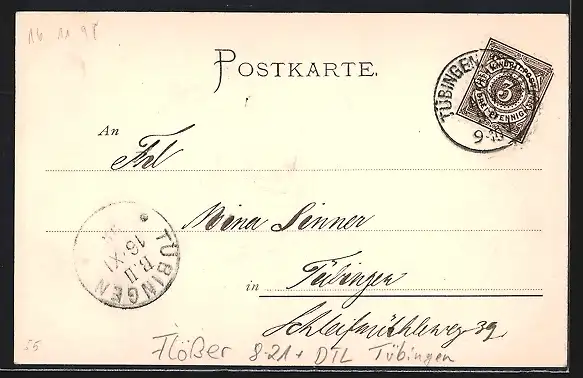 16 11 98
POSTKARTE.
TÜBINGEN
9-10
REICHSPOST
3
DREI PFENNIG
An
Frl
Mina Sinner
in Tübingen
Schleifmühleweg 39
TÜBINGEN
16. XI
B. II
55
Flößer 8-21 + DTL Tübingen